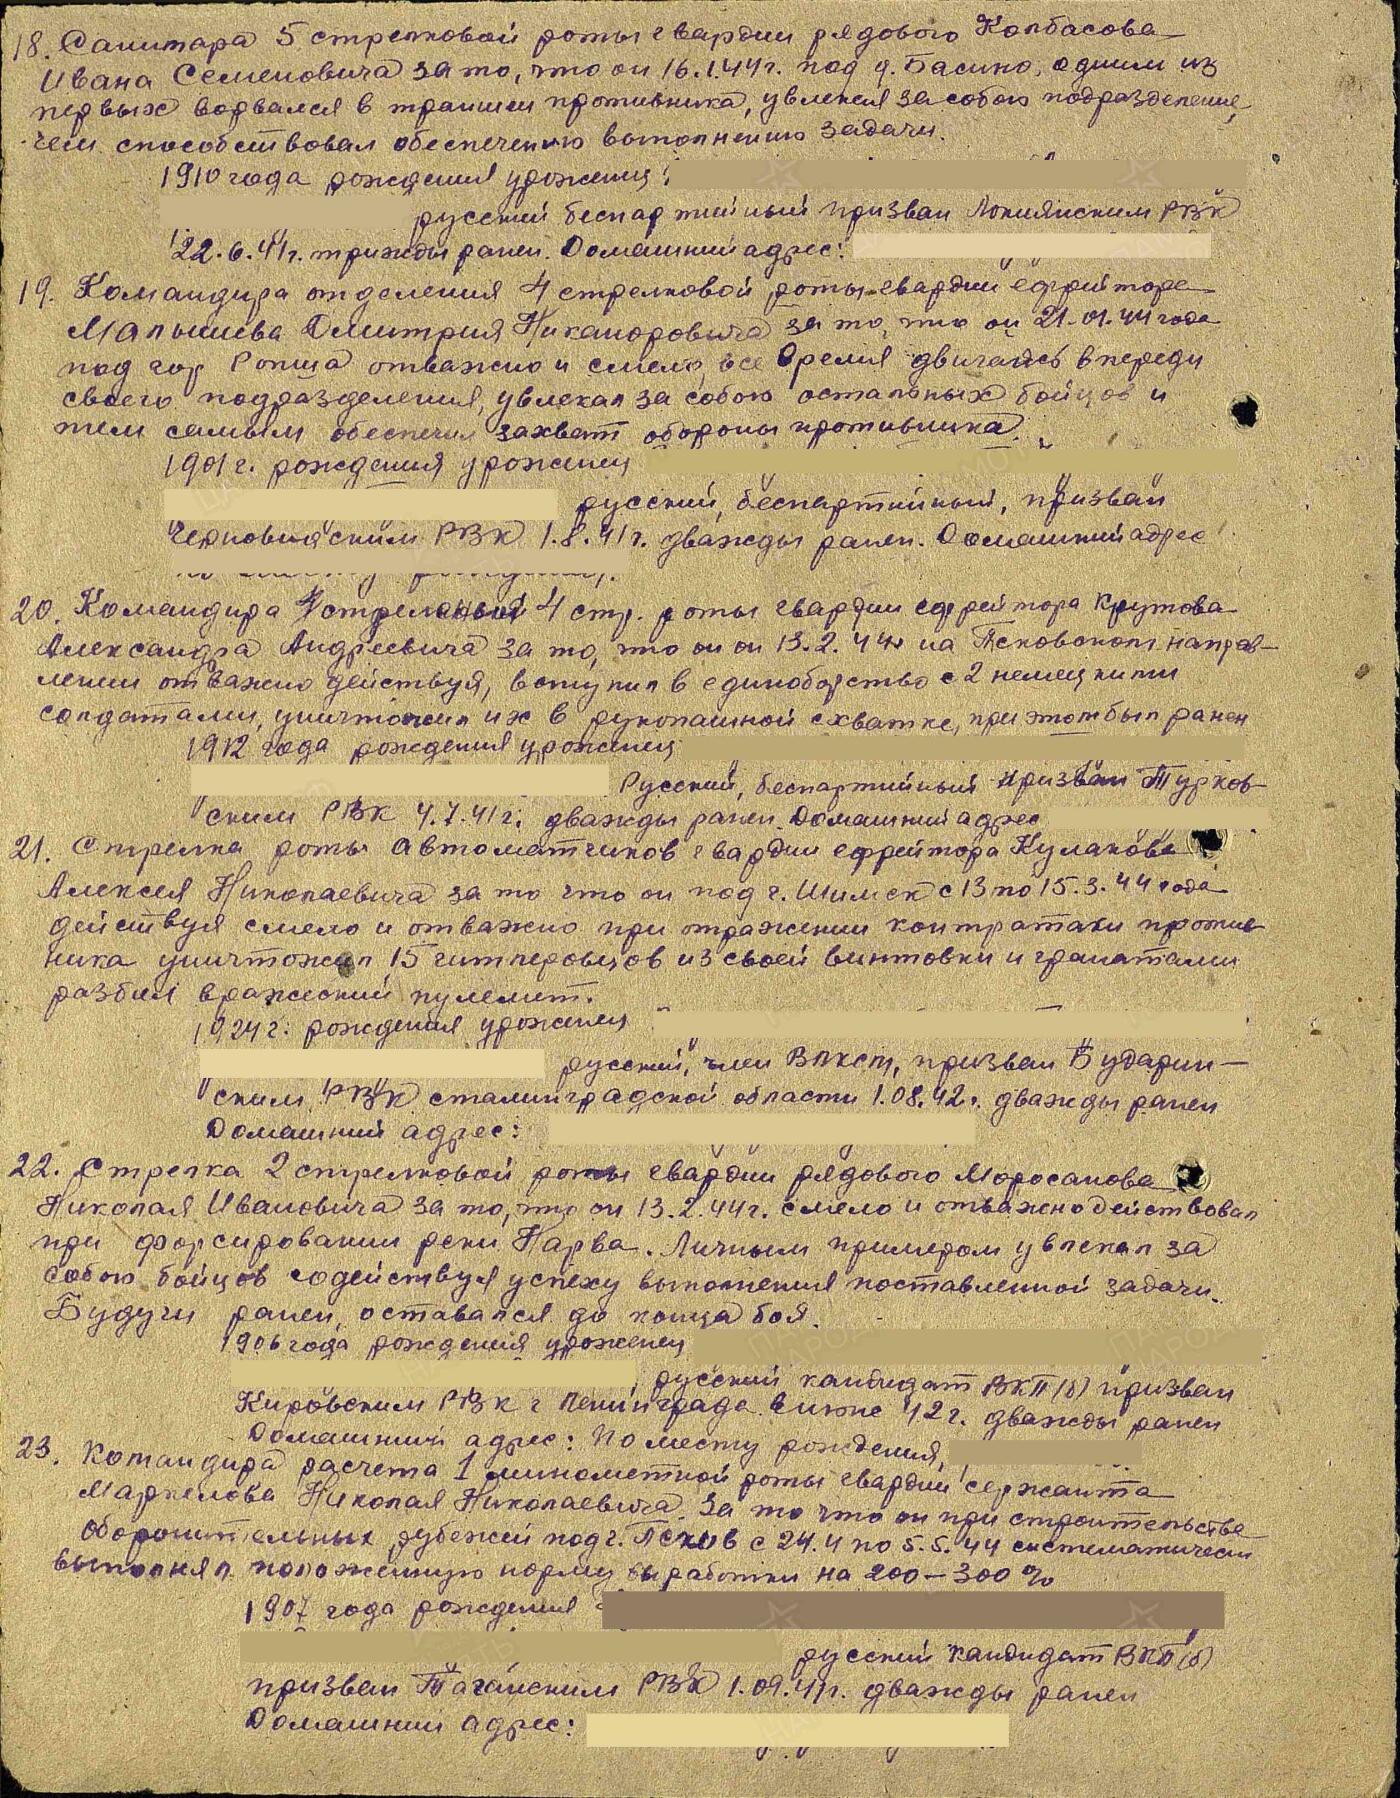 18. Санитара 5 стрелковой роты гвардии рядового Колбасова
Ивана Семеновича за то, что он 16.1.44г. под д. Басино, одним из
первых ворвался в траншеи противника, увлекая за собою подразделение,
чем способствовал обеспечению выполнению задачи.
1910 года рождения уроженец:
русский беспартийный призван Локнянским РВК
22.6.41г. трижды ранен. Домашний адрес:
19. Командира отделения 4 стрелковой роты гвардии ефрейтора
Малышева Дмитрия Никаноровича за то, что он 21.01.44 года
под гор Ропша отважно и смело, все время двигаясь впереди
своего подразделения, увлекал за собою остальных бойцов и
тем самым обеспечил захват обороны противника.
1901г. рождения уроженец
русский, беспартийный, призван
РВК 1.8.41г. дважды ранен. Домашний адрес
20. Командира 4 стр. роты гвардии ефрейтора Крутова
Александра Андреевича за то, что он он 13.2.44 на Псковском направ-
лении отважно действуя, вступил в единоборство с 2 немецкими
солдатами, уничтожил их в рукопашной схватке, при этом был ранен
1912 года рождения уроженец
Русский, беспартийный призван Турков-
ским РВК 4.7.41г. дважды ранен. Домашний адрес
21. Стрелка роты автоматчиков гвардии ефрейтора Кулакова
Алексея Николаевича за то что он под г. Шимск с 13 по 15.3.44 года
действуя смело и отважно при отражении контратаки против-
ника уничтожил 15 гитлеровцов из своей винтовки и гранатами
разбил вражеский пулемет.
1924г. рождения уроженец
русский, член ВЛКСМ, призван Бударин-
ским РВК сталинградской области 1.08.42г. дважды ранен
Домашний адрес:
22. Стрелка 2 стрелковой роты гвардии рядового Моросанова
Николая Ивановича за то, что он 13.2.44г. смело и отважно действовал
при форсировании реки Нарва. Личным примером увлекал за
собою бойцов содействуя успеху выполнения поставленной задачи.
Будучи ранен, оставался до конца боя.
1906 года рождения уроженец
русский кандидат ВКП(б) призван
Кировским РВК г Ленинграда в июне 42г. дважды ранен
Домашний адрес: По месту рождения,
23. Командира расчета 1 минометной роты гвардии сержанта
Маркелова Николая Николаевича. За то что он при строительстве
оборонительных рубежей под г. Псков с 24.4 по 5.5.44 систематически
выполнял положенную норму выработки на 200-300%
1907 года рождения
русский кандидат ВКП(б)
призван Таганским РВК 1.09.41г. дважды ранен
Домашний адрес: